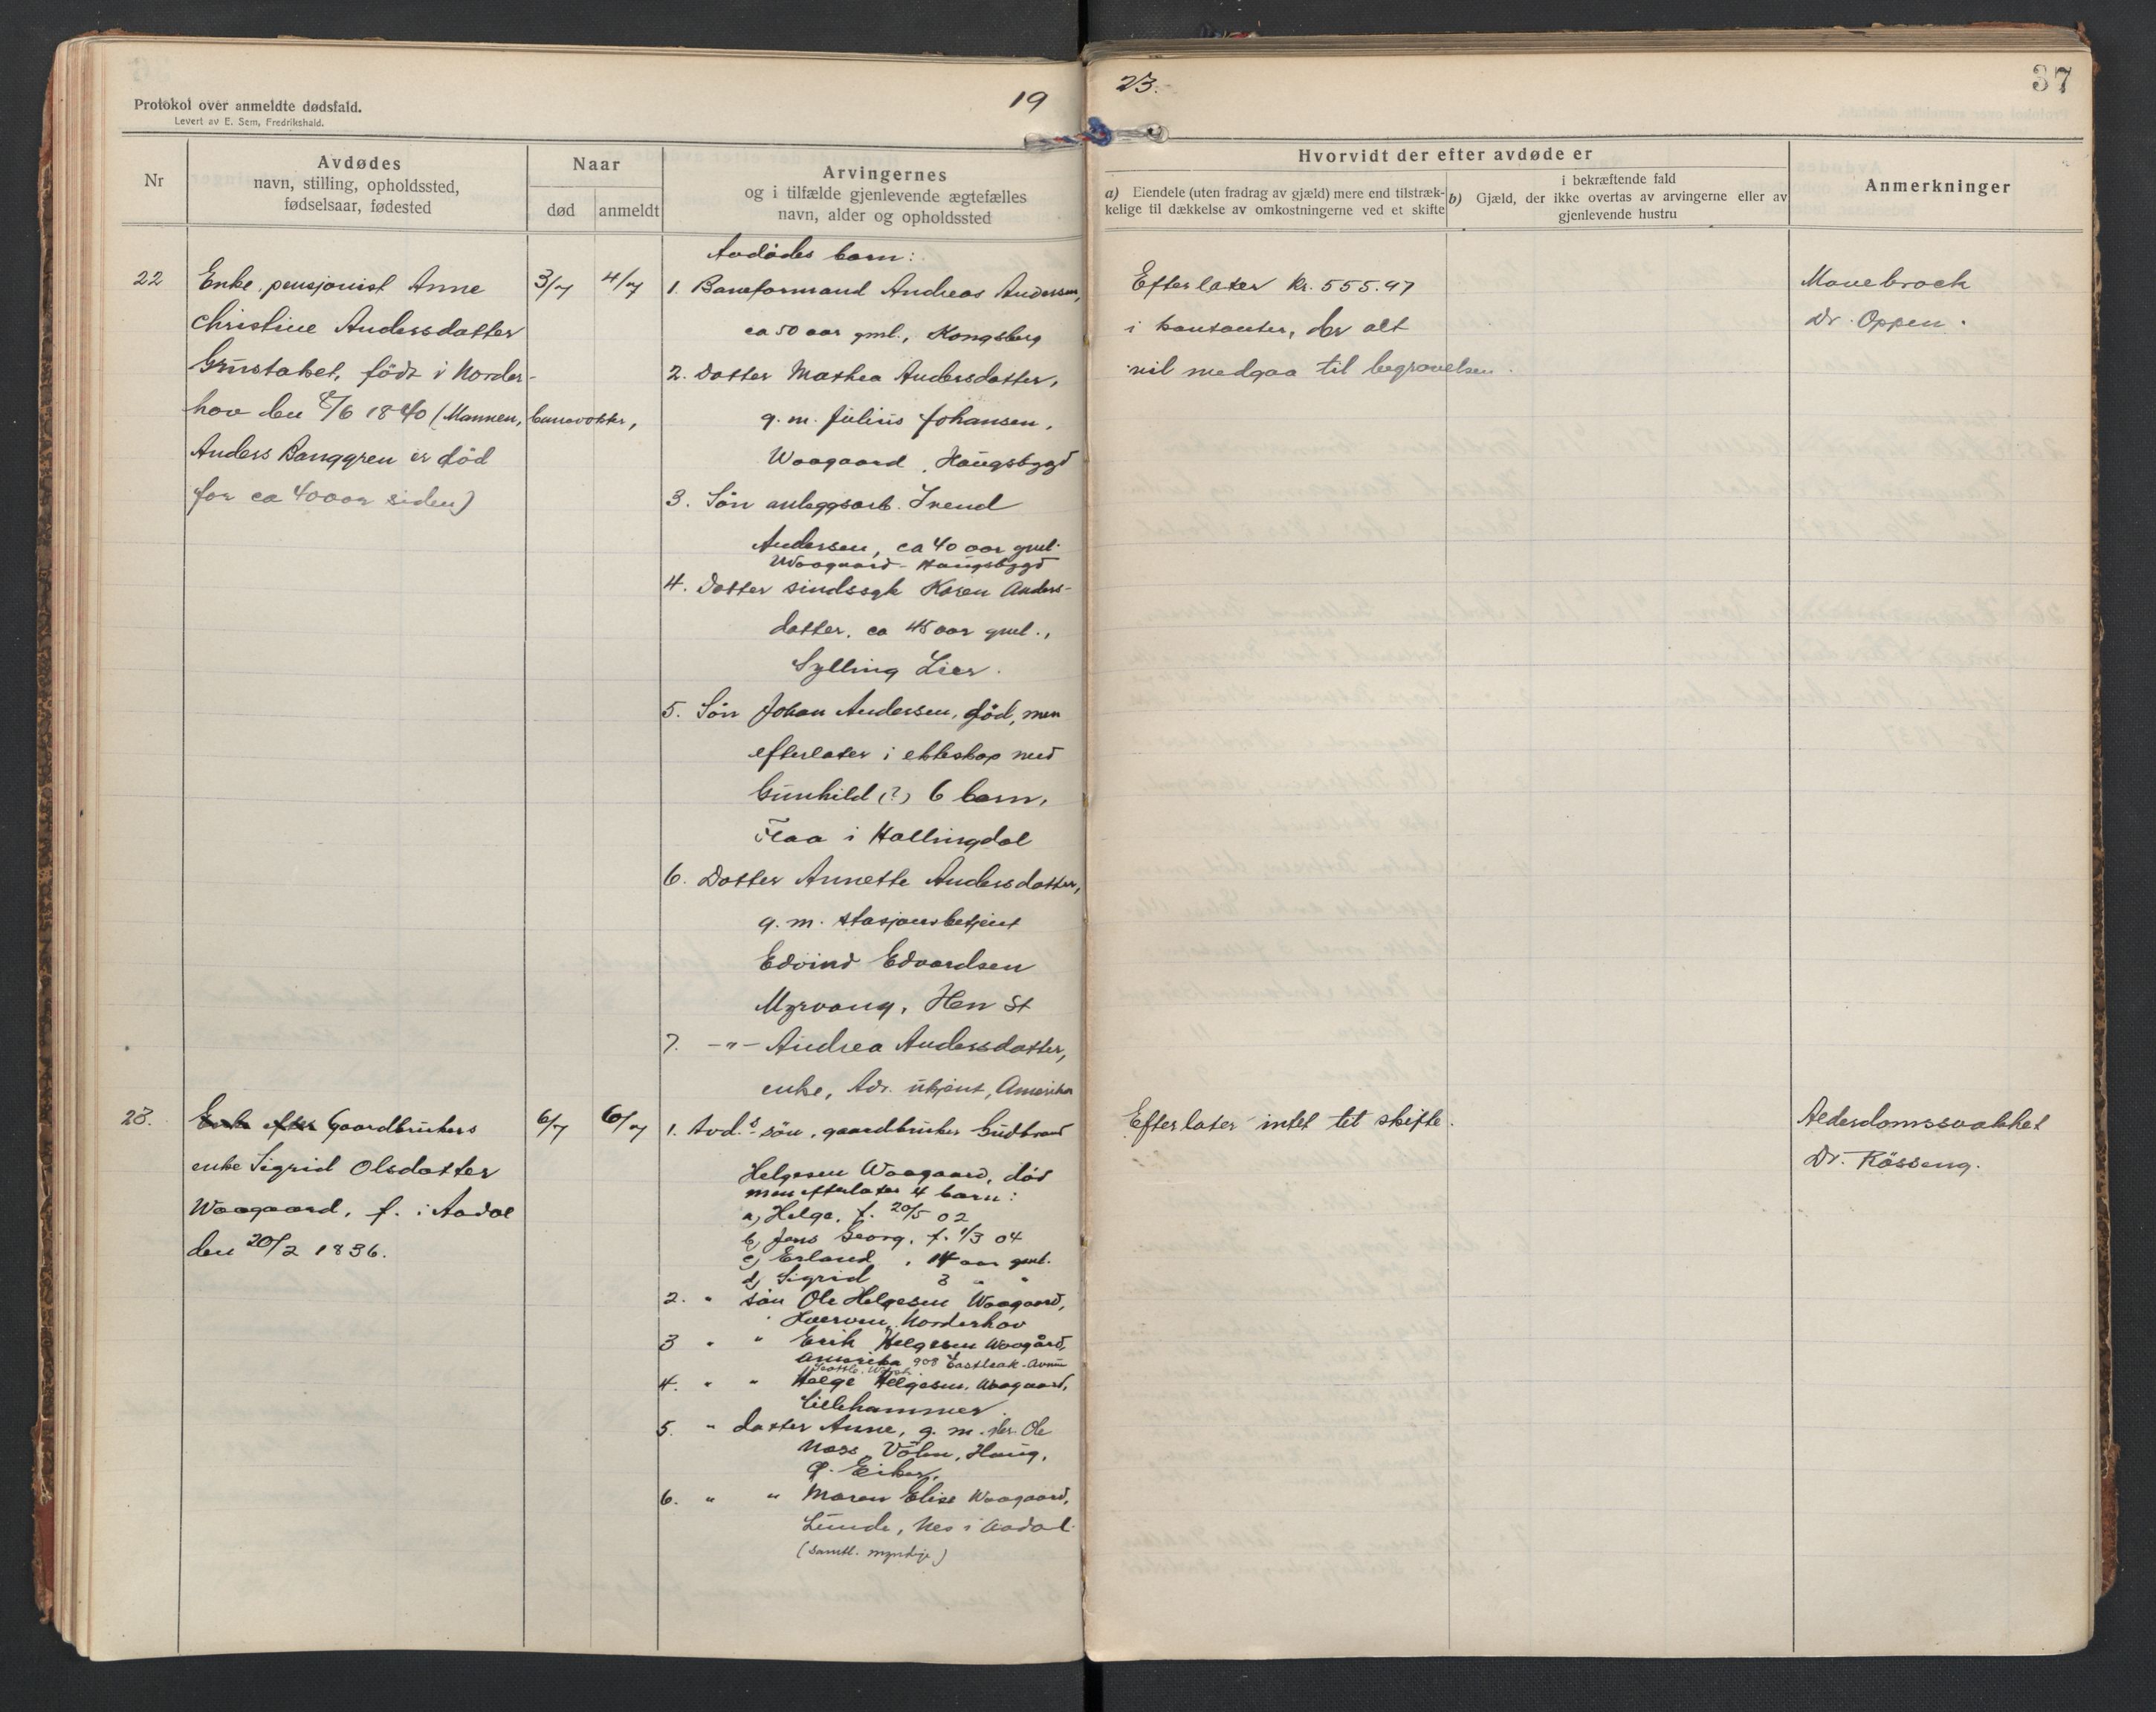 Protokol over anmeldte dødsfald.
Levert av E. Sem, Fredrikshald.
19
23.
37
Nr
Avdødes
navn, stilling, opholdssted,
fødselsaar, fødested
Naar
død
anmeldt
Arvingernes
og i tilfælde gjenlevende ægtefælles
navn, alder og opholdssted
Hvorvidt der efter avdøde er
a) Eiendele (uten fradrag av gjæld) mere end tilstræk-
kelige til dækkelse av omkostningerne ved et skifte
i bekræftende fald
b) Gjæld, der ikke overtas av arvingerne eller av
gjenlevende hustru
Anmerkninger
22
Enke, pensjonist Anne
Christine Andersdatter
Grustaket, født i Norder-
hov den 8/6 1840 (Mannen, banevokter,
Anders Banggren er død
for ca 40 aar siden)
3/7
4/7
Avdødes barn:
1. Baneformand Andreas Andersen,
ca 50 aar gml., Kongsberg
2. Datter Mathea Andersdatter,
g. m. Julius Johansen,
Waagaard, Haugsbygd
3. Søn anleggsarb. Trend
Andersen, ca 40 aar gml.
Waagaard - Haugsbygd
4. Datter sindssyk Karen Anders-
datter, ca 45 aar gml.,
Sylling Lier.
5. Søn Johan Andersen, død, men
efterlater i ekteskap med
Gunhild (?) 6 barn,
Flaa i Hallingdal
6. Datter Annette Andersdatter,
g. m. stasjonsbetjent
Edvind Edvardsen
Myrvang, Hen St
7. -"- Andrea Andersdatter,
enke, Adr. ukjent, Amerika
Efterlater kr. 555.97
i kontanter, der alt
vil medgaa til begravelsen.
Mavebrock
Dr. Oppen.
23.
Enke efter Gaardbrukers
enke Sigrid Olsdatter
Waagaard, f. i Aadal
den 20/2 1836.
6/7
6/7
1. Avd.s søn, gaardbruker Gudbrand
Helgesen Waagaard, død
men efterlater 4 barn:
a, Helge, f. 20/5 02
b, Jens Georg, f. 1/3 04
c, Erland, 14 aar gml.
d, Sigrid 3 " "
2. " søn Ole Helgesen Waagaard,
Hverven, Norderhov
3 " " Erik Helgesen Waagård,
Amerika 908 Eastleak-Avnu
Seattle. Wash
4. " " Helge Helgesen, Waagaard,
Lillehammer
5. " datter Anne, g. m. Ole
Moss, Vølen, Haug,
Ø. Eiker.
6. " " Maren Elise Waagaard,
Lunde, Nes i Aadal
(samtl. myndige)
Efterlater intet til skifte.
Alderdomssvakhet
Dr. Røsseng.